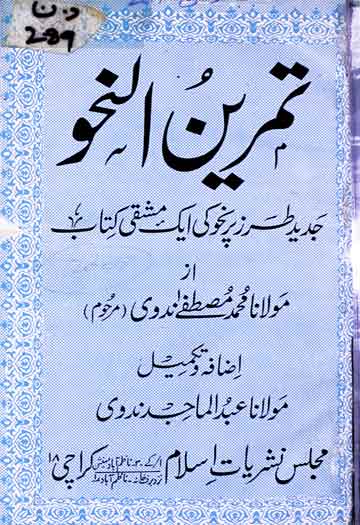 د.ن
289
تمرین النحو
جدید طرز پر نحو کی ایک مشقی کتاب
از
مولانا محمد مصطفےٰ ندوی (مرحوم)
اضافہ و تکمیل
مولانا عبدالماجد ندوی
مجلس نشریات اسلام ناظم آباد کراچی ۱۸